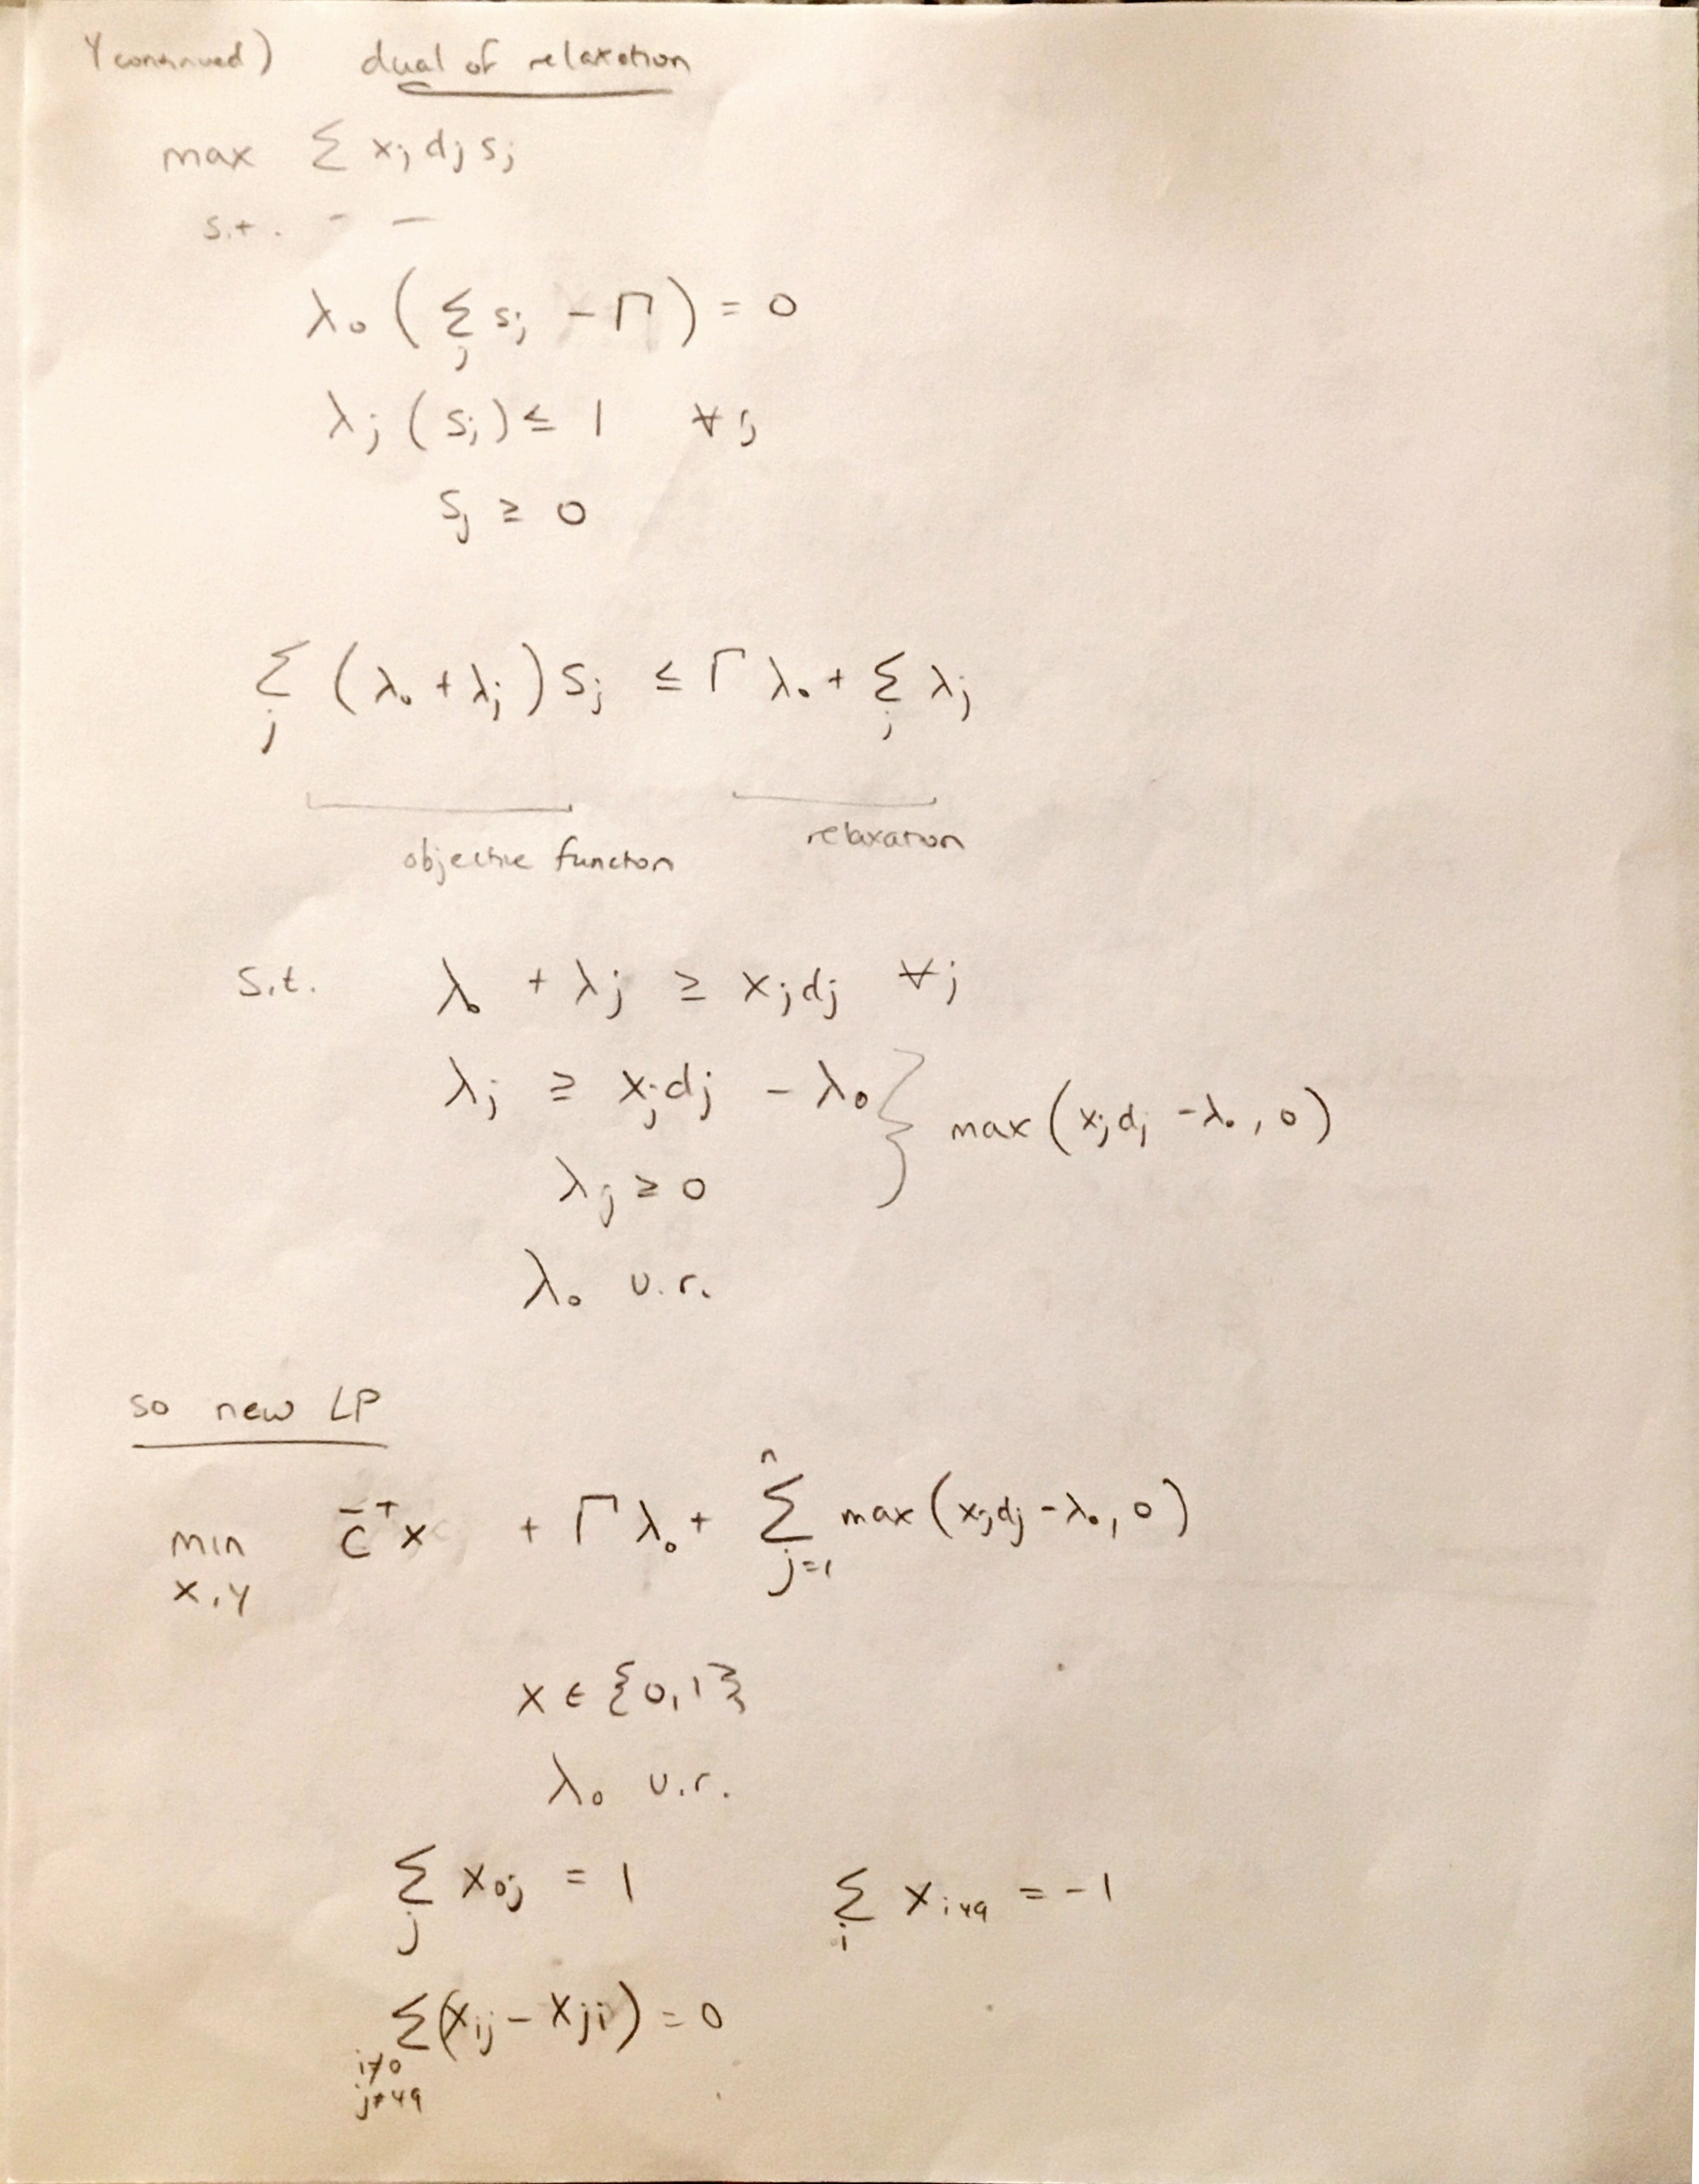 4 continued) dual of relaxation
max Σ xⱼ dⱼ sⱼ
s.t. - -
λ₀ ( Σⱼ sⱼ - Γ ) = 0
λⱼ ( sⱼ ) ≤ 1 ∀ j
sⱼ ≥ 0
Σⱼ ( λ₀ + λⱼ ) sⱼ ≤ Γ λ₀ + Σⱼ λⱼ
objective function relaxation
s.t. λ₀ + λⱼ ≥ xⱼdⱼ ∀ j
λⱼ ≥ xⱼdⱼ - λ₀ } max ( xⱼdⱼ - λ₀ , 0 )
λⱼ ≥ 0
λ₀ u.r.
so new LP
min x,y c̄ᵀx + Γ λ₀ + Σⱼ₌₁ⁿ max ( xⱼdⱼ - λ₀ , 0 )
x ∈ {0,1}
λ₀ u.r.
Σⱼ x₀ⱼ = 1 Σᵢ xᵢ₄₉ = -1
Σ(xᵢⱼ - xⱼᵢ) = 0
i≠0
j≠49